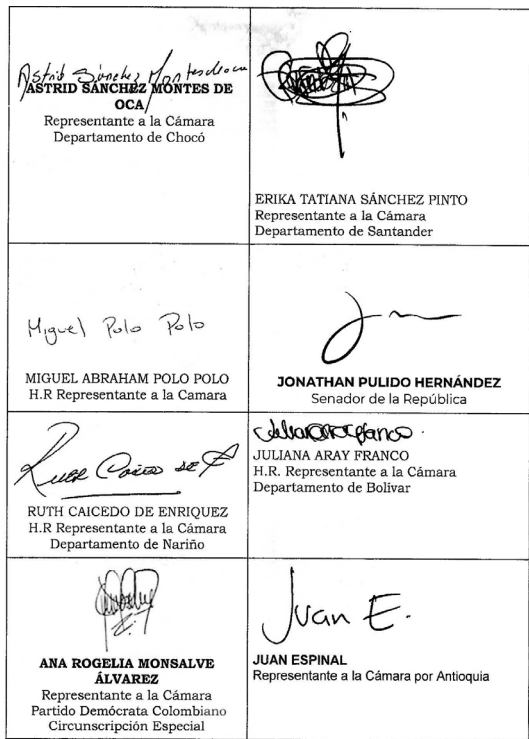 Astrid Sánchez Montesdeoca
ASTRID SÁNCHEZ MONTES DE
OCA
Representante a la Cámara
Departamento de Chocó
ERIKA TATIANA SÁNCHEZ PINTO
Representante a la Cámara
Departamento de Santander
Miguel Polo Polo
MIGUEL ABRAHAM POLO POLO
H.R Representante a la Camara
JONATHAN PULIDO HERNÁNDEZ
Senador de la República
Ruth Caicedo de E
RUTH CAICEDO DE ENRIQUEZ
H.R Representante a la Cámara
Departamento de Nariño
JULIANA ARAY FRANCO
H.R. Representante a la Cámara
Departamento de Bolivar
ANA ROGELIA MONSALVE
ÁLVAREZ
Representante a la Cámara
Partido Demócrata Colombiano
Circunscripción Especial
Juan E.
JUAN ESPINAL
Representante a la Cámara por Antioquia